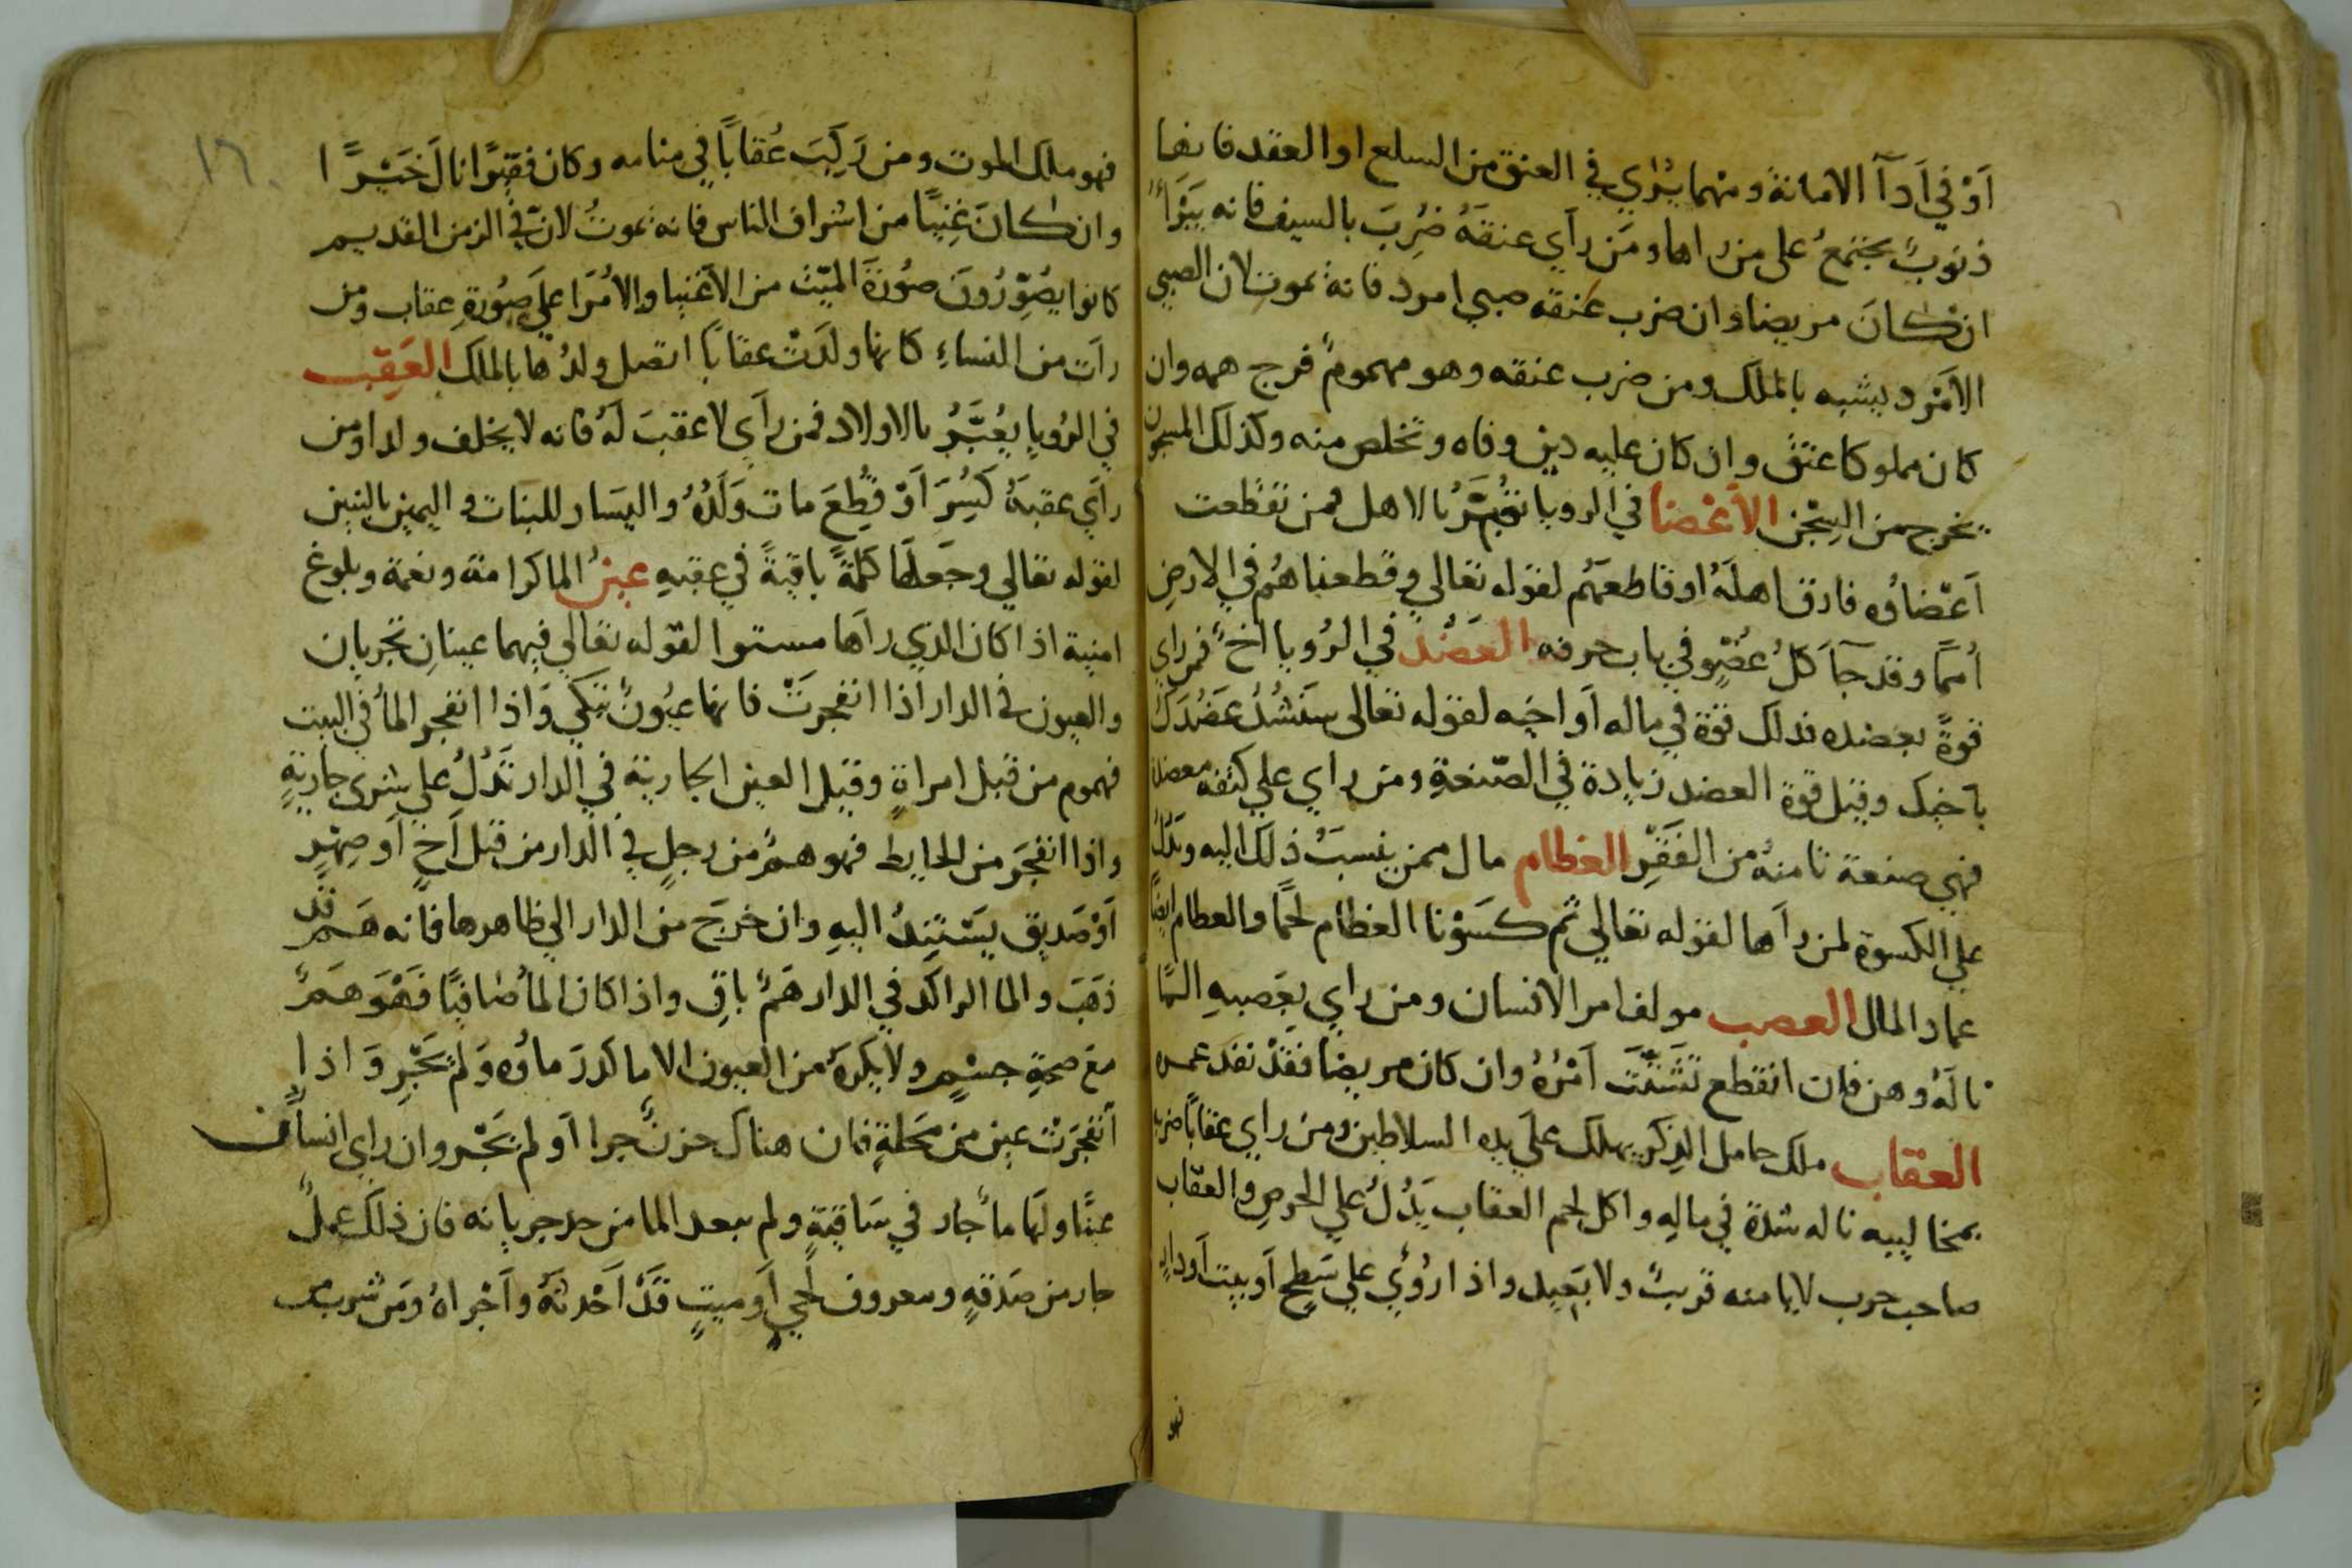 اَوْ في اَدآ الامانة ومهما يرَاي في العنق من السلع او العقد فانها
ذنوبٌ يجتمعُ على من راها ومَن رآي عنقهُ ضُرِبَ بالسيف فانه يَبَرأ
ان كانَ مريضا وان ضرب عنقه صبي امرد فانهُ يموت لان الصبي
الامَرد يشبه بالملك ومن ضرب عنقه وهو مهمومٌ فرج همه وان
كان مملوكا عتقَ وان كان عليه دين وفاه وتخلص منه وكذلك المسجون
يخرج من السِجْن الاَعْضَا في الرويا تعُبَّرُ بالاهل فمن تقطعت
اَعْضاؤه فارق اهلَهُ او قاطعهَم لقوله تعالي وقطعناهُم في الارضِ
اُممًا وقد جآ كلُ عُضوٍ في باب حرفه العَضُد في الرُويا اَخٌ فمن راي
قوةً بعضده فذلك قوة في ماله اَو اخيه لقوله تعالى سَنَشُدُ عَضُدَكَ
باَخيك وقيل قوة العضد زيادة في الصّنعةِ ومن راي علي كتفه معضدة
فهي صنعة تامنهُ من الفَقْرِ العظام مال ممن ينسبَ ذلك اليه وتدُلُ
علي الكسوة لمن رآها لقوله تعالي ثم كسَوْنا العظام لحمًا والعظام ايضًا
عماد المال العصب مولف امر الانسان ومن راي بعَصبهِ المًا
نالَهُ وهن فان انقطع تَشَتّتَ اَمْرُهُ وان كان مريضا فقَدْ نفد عمره
العقاب ملك حامل الذِكر يهلك علَي يده السلاطين ومن راي عقابًا ضربه
بمخاليبه ناله شدة في مالِه واكل لحم العقاب يَدُلُ علي الحرصِ والعقاب
صاحب حرب لا يامنه قريبٌ ولا بَعيد واذا رُؤي علي سَطحٍ اَو بيت اَو دارٍ
فهو
١٦٠
فهو ملك الموت ومن رَكِبَ عُقابًا في منامه وكان فقيرًا نالَ خَيْرًا
وان كانَ غِنيًا من اشراف الناس فانه يموتُ لانّ في الزمن القديم
كانوا يصُوِّرُونَ صُورَةَ الميّت من الاَغنيا والاُمَرا علَي صُورةِ عقاب ومن
رات من النساءِ كانها ولدَتْ عقابًا اتصل ولدُها بالملك العَقِب
في الرُويا يعُبَّرُ بالاولاد فمن رآي لا عقبَ لَهُ فانه لا يخلف ولدا ومن
راَي عقبَهُ كَسِرَ اَوْ قُطِعَ مات وَلَدُهُ واليسَار للبنَات واليمين بالبنين
لقوله تعالي وجَعلهَا كلمةً باقيةً في عقبهِ عينُ الما كرامة ونعمة وبلوغ
امنية اذا كان الذي رآها مستورا لقوله تعالي فيهما عينانِ تجريانِ
والعيون في الدار اذا انفجرَتْ فانها عيُونٌ تبَكي وَاذا انفجر الماُ في البيت
فهموم من قبل امراةٍ وقيل العين الجارية في الدار تَدُلُ علي شرَى جاريةٍ
واذا انفجَر من الحايط فهو همٌ من رجلٍ في الدار من قبل اَخٍ اَو صِهْرٍ
اَوْ صَديق يَسْتَنِدُ اليهِ وان خرجَ من الدار الي ظاهرها فانه هَمٌ قد
ذهَبَ والما الراكد في الدار همٌ باقٍ واذا كان الماُ صَافيًا فَهْوَ هَمٌ
معَ صحةِ جسْمٍ ولا يكرَهُ من العيون الا ما كدرَ ماؤه وَلم يَجْرِ وَاذا
اَنفجَرَتْ عين من مَحَلةٍ فان هناك حزنٌ جرا اَو لم يَجْر وان راي انسانٌ
عينًا ولهَا ماُ جار في سَاقيةٍ ولم يبعد الما من حد جريانه فان ذلك عملٌ
جار من صَدقهٍ ومعروف لحَي اَو ميتٍ قدَ اَحْدثهُ واَجْراهُ ومَن شرب من